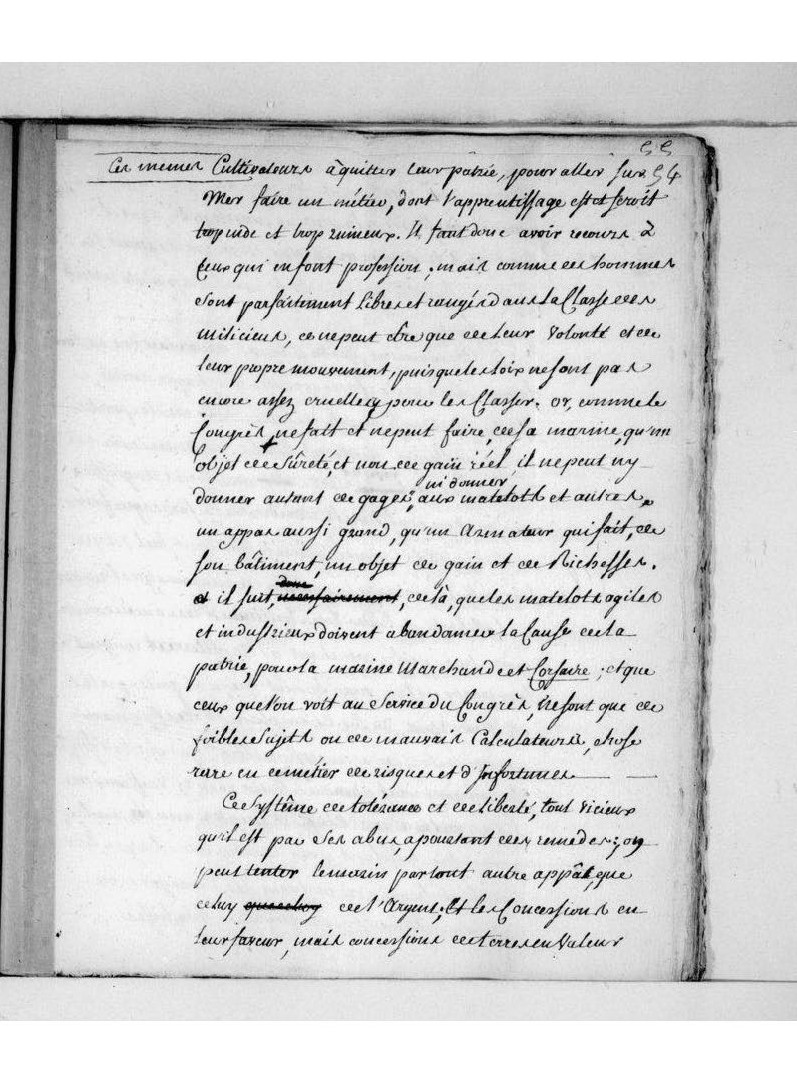 55
Ces memes Cultivateurs à quitter leur patrie, pour aller sur 54
Mer faire un métier, dont l'apprentissage est et seroit
trop rude et trop ruineux. Il faut donc avoir recours à
ceux qui en font profession ; mais comme ces hommes
sont parfaitement libres et rangés dans la Classe des
miliciens, ce ne peut être que de leur volonté et de
leur propre mouvement, puisque les loix ne sont pas
encore assez cruelles pour les Classer. or, comme le
Congrès, ne fait et ne peut faire, de sa marine, qu'un
objet de sûreté, et non de gain réel, il ne peut ny
ni donner
donner autant de gages, aux matelots et autres,
un appas aussi grand, qu'un Armateur qui fait, de
son bâtiment, un objet de gain et de Richesses.
donc
et il suit, necessairement, de là, que les matelots agiles
et industrieux doivent abandonner la Cause de la
patrie, pour la marine Marchande et Corsaire ; et que
ceux que l'on voit au Service du Congrès, ne sont que de
foibles Sujets ou de mauvais Calculateurs, chose
rare en ce métier de risques et d'Infortunes.
Ce Systême de tolérance et de liberté, tout vicieux
qu'il est par ses abus, a pourtant des remedes ; on
peut tenter le marin par tout autre appât, que
celuy de l'Argent. Et les Concessions en
leur faveur, mais concessions de terres en Valeur